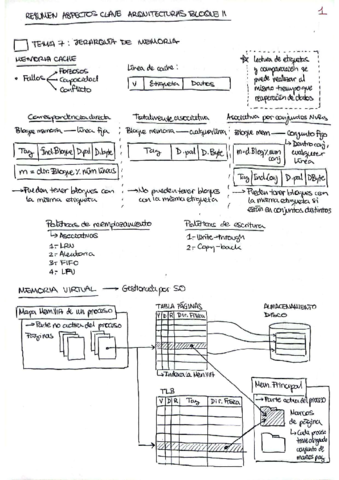 RESUMEN ASPECTOS CLAVE ARQUITECTURAS BLOQUE II
1
TEMA 7: JERARQUÍA DE MEMORIA
MEMORIA CACHE
Fallos
Forzosos
Capacidad
Conflicto
Línea de cache:
V Etiqueta Datos
Lectura de etiquetas
y comparación se
puede realizar al
mismo tiempo que
recuperación de datos
Correspondencia directa
Bloque memoria → línea fija
Tag Ind.Bloque D.pal D.byte
m = dir. Bloque % num líneas
→ Pueden tener bloques con
la misma etiqueta
Totalmente asociativa
Bloque memoria → cualquier línea
Tag D.pal D.Byte
→ No pueden tener bloques
con la misma etiqueta
Asociativa por conjuntos N vías
Bloque mem → conjunto fijo
↳ Dentro conj
cualquier
línea
m = d.Bloq % num conj
Tag Ind.Conj D.pal D.Byte
→ Pueden tener bloques con
la misma etiqueta si
están en conjuntos distintos
Políticas de reemplazamiento
↳ Asociativas
1.- LRU
2.- Aleatoria
3.- FIFO
4.- LFU
Políticas de escritura
1.- Write-through
2.- Copy-back
MEMORIA VIRTUAL → Gestionada por SO
Mapa Mem.Vir de un proceso
→ Parte no activa del proceso
Páginas
TABLA PÁGINAS
V D R Dir. Física
ALMACENAMIENTO
DISCO
TLB
V D R Tag Dir. Física
Mem. Principal
→ Parte activa del proceso
Marcos
de página
↳ Cada proceso
conjunto de